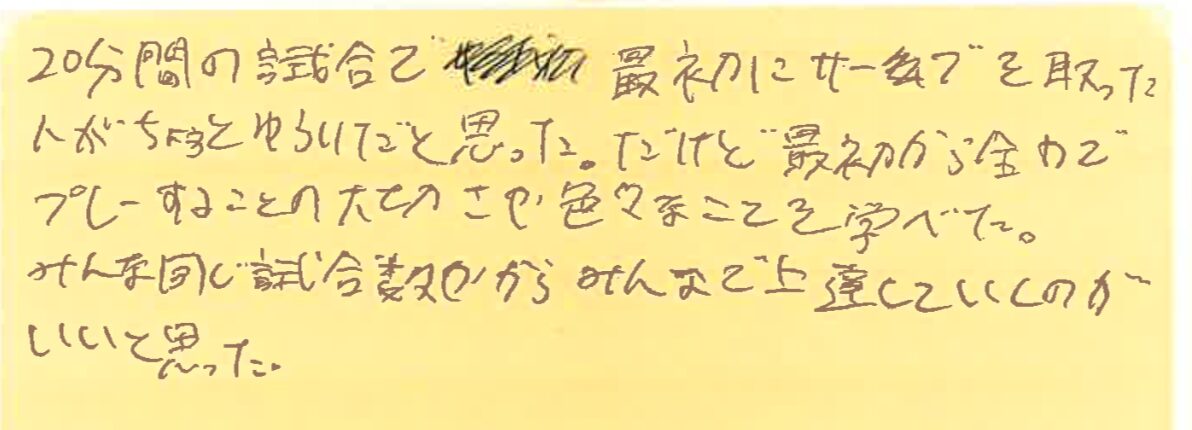 20分間の試合で 最初にサーブを取った
人がちょっとゆうりだと思った。だけど最初から全力で
プレーすることの大切さや色々なことを学べた。
みんな同じ試合数だからみんなで上達していくのが
いいと思った。